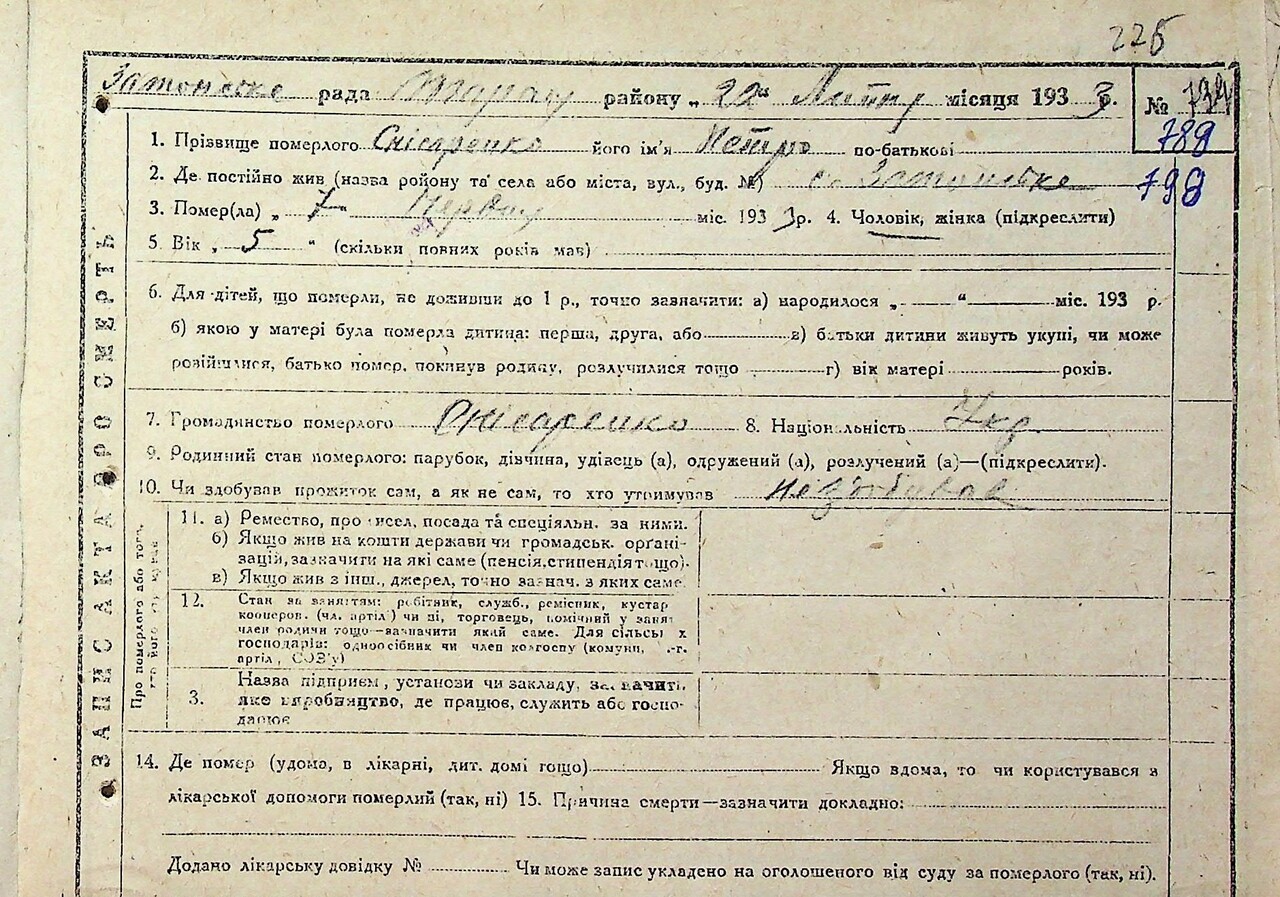 226
Затонське рада району „22“ Липня місяця 1933 р. №
789
1. Прізвище померлого Снісаренко його ім'я Петро по-батькові
2. Де постійно жив (назва ройону та села або міста, вул., буд. №) с. Затонське 798
3. Помер(ла) „7“ Червня міс. 1933 р. 4. Чоловік, жінка (підкреслити)
5. Вік „ 5 “ (скільки повних років мав)
6. Для дітей, що померли, не доживши до 1 р., точно зазначити: а) народилося „ “ міс. 193 р.
б) якою у матері була померла дитина: перша, друга, або в) батьки дитини живуть укупі, чи може
розійшлися, батько помер, покинув родину, розлучилися тощо г) вік матері років.
7. Громадинство померлого Снісаренко 8. Національність Укр.
9. Родинний стан померлого: парубок, дівчина, удівець (а), одружений (а), розлучений (а)—(підкреслити).
10. Чи здобував прожиток сам, а як не сам, то хто утримував Не здобував
ЗАПИС АКТА ПРО СМЕРТЬ
Про померлого або того,
хто його
11. а) Ремество, про исел, посада та спеціяльн. за ними.
б) Якщо жив на кошти держави чи громадськ. орґані-
зацій, зазначити на які саме (пенсія, стипендія тощо).
в) Якщо жив з інш., джерел, точно зазнач. з яких саме.
12. Стан за заняттям: робітник, служб., ремісник, кустар
кооперов. (чл. артіл ) чи ні, торговець, помічний у заня
член родини тощо—зазначити який саме. Для сільсь х
господарів: одноосібник чи член колгоспу (комуни, .-г.
артіл , СОЗ'у)
3. Назва підприєм , установи чи закладу, зазначить
яке виробництво, де працює, служить або госпо-
дарює
14. Де помер (удома, в лікарні, дит. домі тощо) Якщо вдома, то чи користувався з
лікарської допомоги померлий (так, ні) 15. Причина смерти—зазначити докладно:
Додано лікарську довідку № Чи може запис укладено на оголошеного від суду за померлого (так, ні).